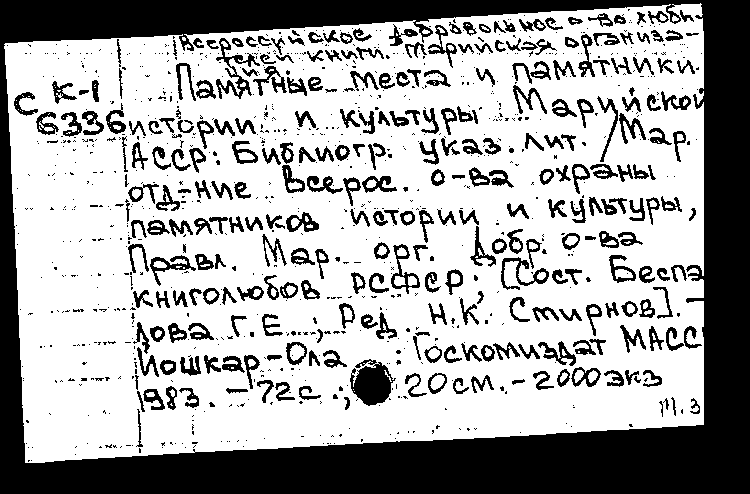 Всероссийское добровольное о-во люби-
телей книги. Марийская организа-
ция.
Памятные места и памятники
С К-1
6336 истории и культуры Марийской
АССР: Библиогр. указ. лит. / Мар.
отд-ние Всерос. о-ва охраны
памятников истории и культуры,
Правл. Мар. орг. Добр. о-ва
книголюбов РСФСР; [Сост. Беспа
лова Г.Е.; Ред. Н.К. Смирнов]. –
Йошкар-Ола : Госкомиздат МАСС
983. – 72 с.; 20 см. – 2000 экз